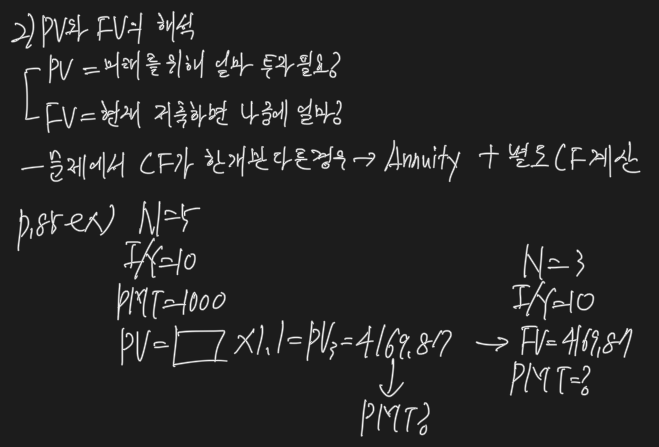 2) PV와 FV의 해석
PV = 미래를 위해 얼마 투자필요?
FV = 현재 저축하면 나중에 얼마?
- 문제에서 CF가 한개만 다른경우 → Annuity + 별도 CF 계산
p.88 ex) N=5
I/Y=10
PMT=1000
PV= ×1.1=PV₃=4169.87
PMT?
N=3
I/Y=10
→ FV=4169.87
PMT=?